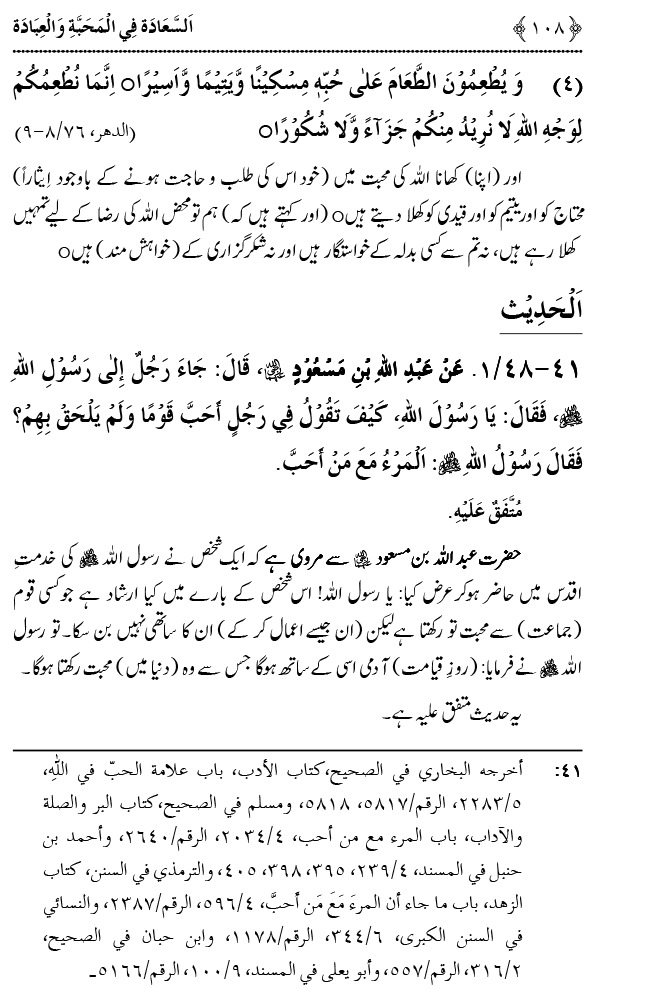 ﴿١٠٨﴾ اَلسَّعَادَة فِي الْمَحَبَّةِ وَالْعِبَادَة
(٤) وَ يُطْعِمُوْنَ الطَّعَامَ عَلٰی حُبِّهٖ مِسْكِيْنًا وَّيَتِيْمًا وَّاَسِيْرًاo اِنَّمَا نُطْعِمُكُمْ
لِوَجْهِ اللهِ لَا نُرِيْدُ مِنْكُمْ جَزَآءً وَّلَا شُكُوْرًاo (الدهر، ٧٦/٨-٩)
اور (اپنا) کھانا اللہ کی محبت میں (خود اس کی طلب و حاجت ہونے کے باوجود اِیثاراً)
محتاج کو اور یتیم کو اور قیدی کو کھلا دیتے ہیںo (اور کہتے ہیں کہ) ہم تو محض اللہ کی رضا کے لیے تمہیں
کھلا رہے ہیں، نہ تم سے کسی بدلہ کے خواستگار ہیں اور نہ شکرگزاری کے (خواہش مند) ہیںo
اَلْحَدِيْث
٤١-٤٨/١. عَنْ عَبْدِ اللهِ بْنِ مَسْعُوْدٍ رضي الله عنه، قَالَ: جَاءَ رَجُلٌ إِلٰی رَسُوْلِ اللهِ
ﷺ، فَقَالَ: يَا رَسُوْلَ اللهِ، كَيْفَ تَقُوْلُ فِي رَجُلٍ أَحَبَّ قَوْمًا وَلَمْ يَلْحَقْ بِهِمْ؟
فَقَالَ رَسُوْلُ اللهِ ﷺ: اَلْمَرْءُ مَعَ مَنْ أَحَبَّ.
مُتَّفَقٌ عَلَيْهِ.
حضرت عبد اللہ بن مسعود رضي الله عنه سے مروی ہے کہ ایک شخص نے رسول اللہ ﷺ کی خدمتِ
اقدس میں حاضر ہوکر عرض کیا: یا رسول اللہ! اس شخص کے بارے میں کیا ارشاد ہے جو کسی قوم
(جماعت) سے محبت تو رکھتا ہے لیکن (ان جیسے اعمال کر کے) ان کا ساتھی نہیں بن سکا۔ تو رسول
اللہ ﷺ نے فرمایا: (روزِ قیامت) آدمی اسی کے ساتھ ہوگا جس سے وہ (دنیا میں) محبت رکھتا ہوگا۔
یہ حدیث متفق علیہ ہے۔
٤١: أخرجه البخاري في الصحيح،كتاب الأدب، باب علامة الحبّ في اللهِ،
٢٢٨٣/٥، الرقم/٥٨١٧، ٥٨١٨، ومسلم في الصحيح،كتاب البر والصلة
والآداب، باب المرء مع من أحب، ٢٠٣٤/٤، الرقم/٢٦٤٠، وأحمد بن
حنبل في المسند، ٢٣٩/٤، ٣٩٥، ٣٩٨، ٤٠٥، والترمذي في السنن، كتاب
الزهد، باب ما جاء أن المرءَ مَعَ مَن أحبَّ، ٥٩٦/٤، الرقم/٢٣٨٧، والنسائي
في السنن الكبرى، ٣٤٤/٦، الرقم/١١٧٨، وابن حبان في الصحيح،
٣١٦/٢، الرقم/٥٥٧، وأبو يعلى في المسند، ١٠٠/٩، الرقم/٥١٦٦۔